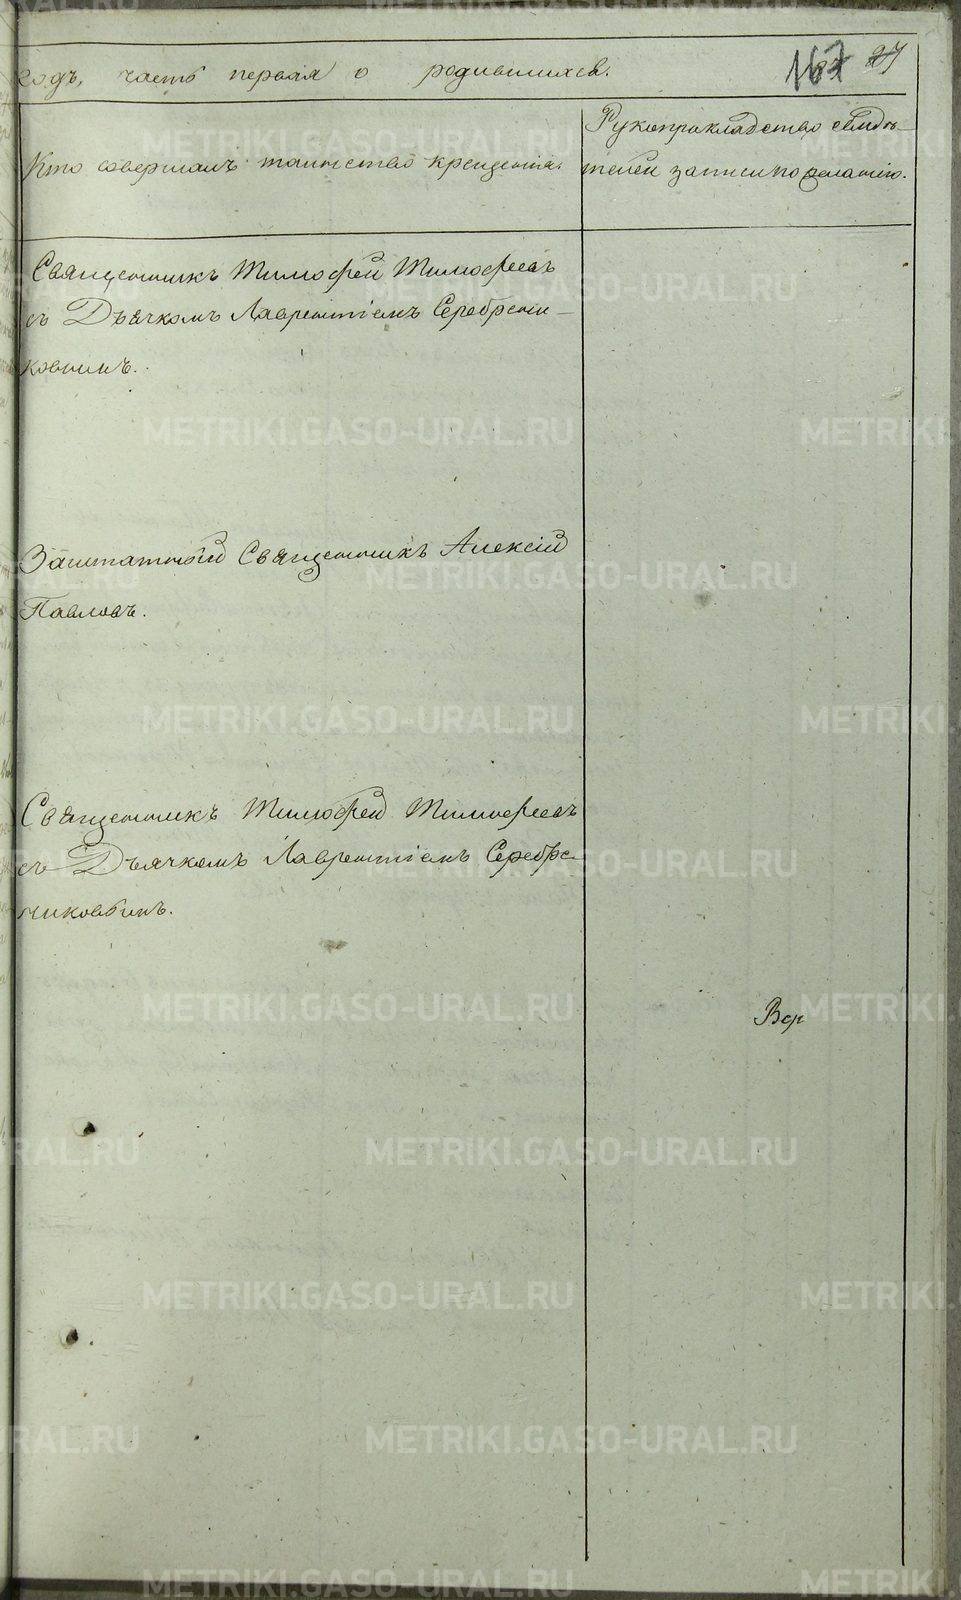 годъ, часть первая о родившихся.
167 27
Рукоприкладство свидѣ-
Кто совершалъ таинство крещенія.
телей записи по желанію.
Священникъ Тимофей Тимофеевъ
съ Дьячкомъ Лаврентіемъ Серебрени-
ковымъ.
Заштатный Священникъ Алексій
Павловъ.
Священникъ Тимофей Тимофеевъ
съ Дьячкомъ Лаврентіемъ Серебре-
никовымъ.
METRIKI.GASO-URAL.RU